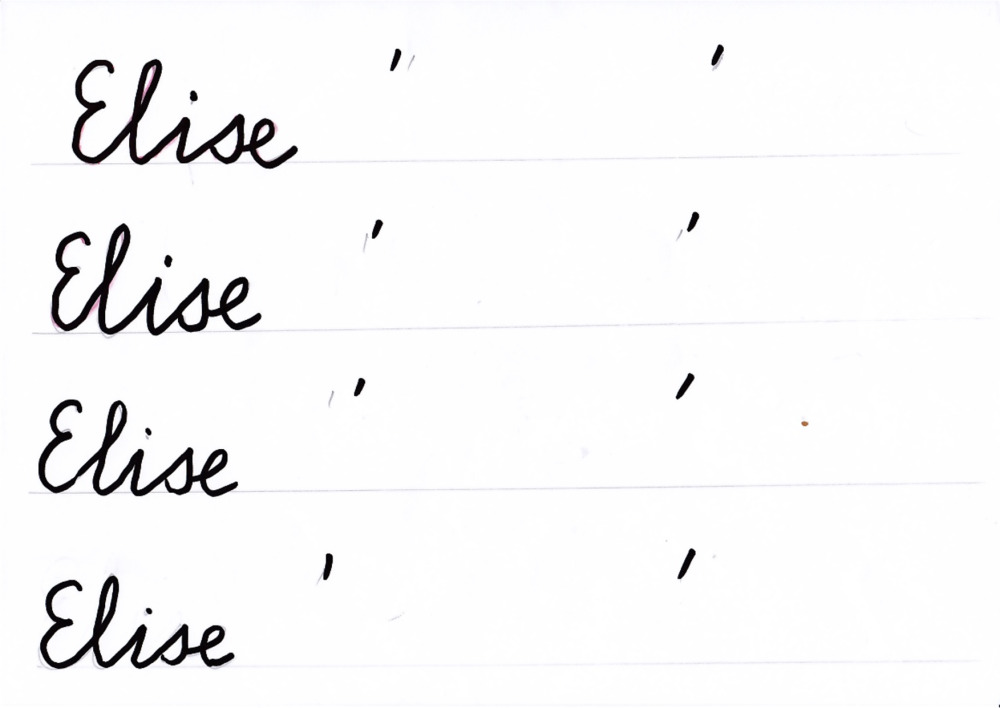 Elise ' '
Elise ' '
Elise ' '
Elise ' '